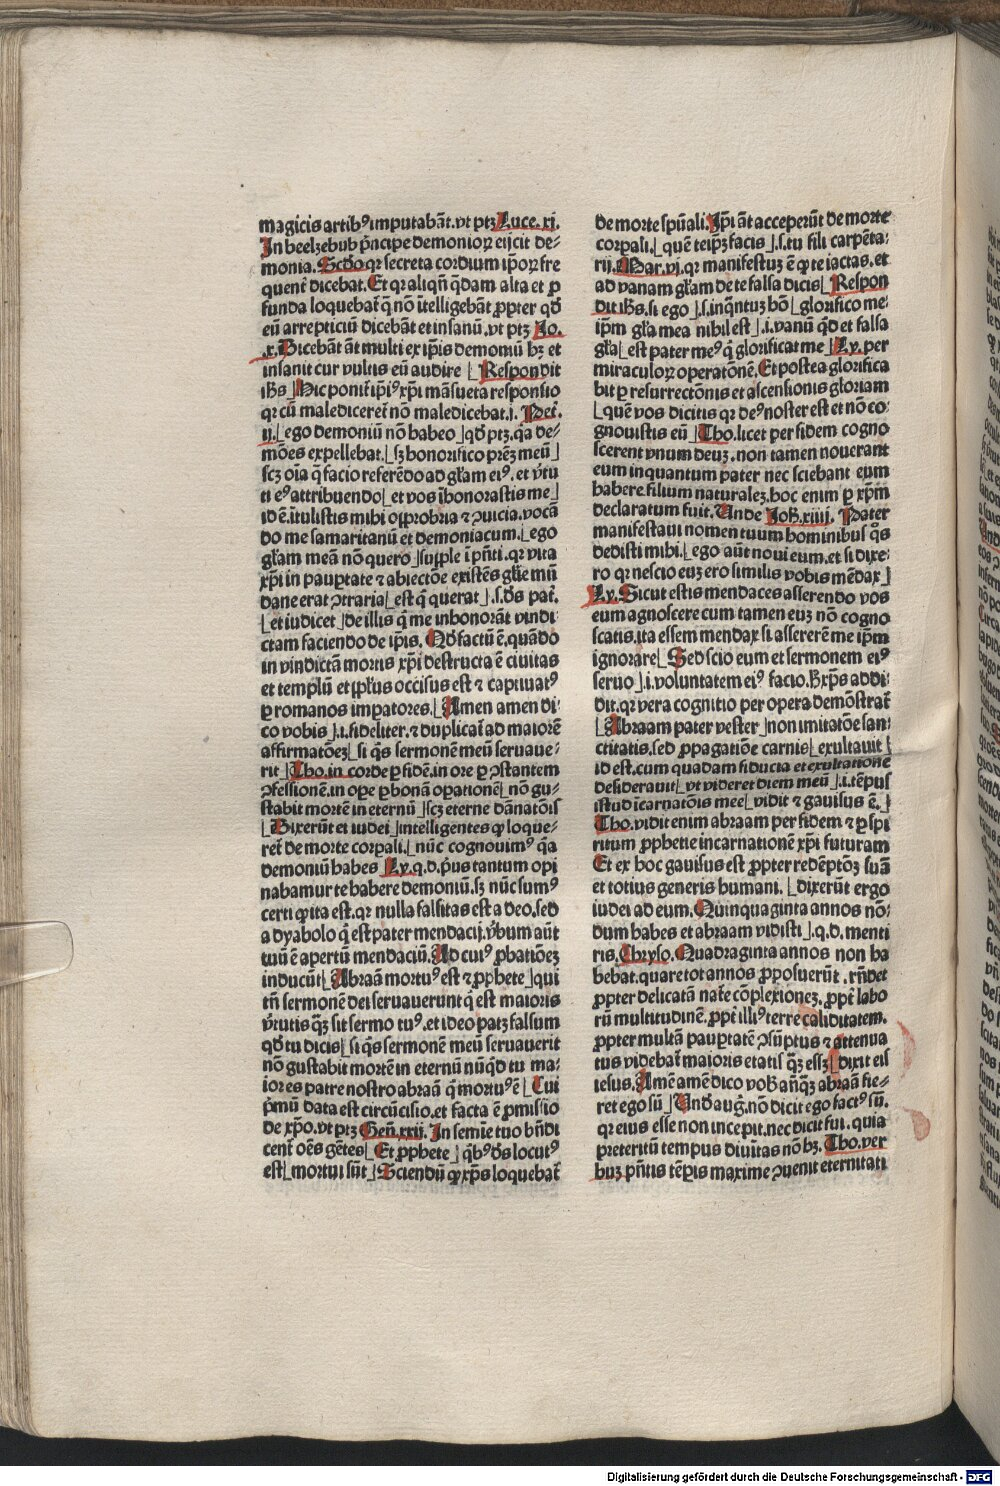 magicis artibꝰ imputabãt. vt ptꝫ Luce. xj.
In beelzebub p̃ncipe demonioꝝ eijcit de⸗
monia. Scdo qꝛ secreta cordium ip̃oꝝ fre
quent̃ dicebat. Et qꝛ aliqñ q̃dam alta et ꝓ
funda loquebat̃ q̃ nõ ĩtelligebãt ꝓpter qd̃
eũ arrepticiũ dicebãt et insanũ. vt ptꝫ Jo.
.x. Dicebãt ãt multi ex ip̃is demoniũ hꝫ et
insanit cur vultis eũ audire ⌊ Respondit
ihs̃ ⌋ Hic ponit̃ ip̃iꝰ xp̃i mãsueta responsio
qꝛ cũ malediceret̃ nõ maledicebat. j. Pet̃.
ij. ⌊ ego demoniũ nõ habeo ⌋ qd̃ ptꝫ. q̃a de⸗
mões expellebat. ⌊ sꝫ honorifico prẽꝫ meũ ⌋
scꝫ oĩa q̃ facio referẽdo ad gl̃am eiꝰ. et ṽtu
ti eꝰ attribuendo ⌊ et vos ĩhonorastis me ⌋
id ẽ. ĩtulistis mihi oꝓbria ⁊ ꝯuicia. vocã
do me samaritanũ et demoniacum. ⌊ ego
gl̃am meã nõ quero ⌋ supple ĩ pñti. qꝛ vita
xp̃i in pauꝑtate ⁊ abiectõe existẽs gl̃ie mũ
dane erat ꝯtraria ⌊ est q̃ querat ⌋ .s. dẽs pat̃.
⌊ et iudicet ⌋ de illis q̃ me inhonorãt vindi
ctam faciendo de ip̃is. Qd̃ factũ ẽ. quãdo
in vindictã mortis xp̃i destructa ẽ ciuitas
et templũ et pp̃lus occisus est ⁊ captiuatꝰ
ꝑ romanos imꝑatores. ⌊ Amen amen di⸗
co vobis ⌋ .i. fideliter. ⁊ duplicat̃ ad maiorẽ
affirmatõeꝫ ⌊ si q̃s sermonẽ meũ seruaue⸗
rit ⌋ Tho. in corde ꝑ fidẽ. in ore ꝑ ꝯstantem
ꝯfessionẽ. in oꝑe ꝑ bonã oꝑationẽ ⌊ nõ gu⸗
stabit mortẽ in eternũ ⌋ scꝫ eterne dãnatõis
⌊ Dixerũt et iudei ⌋ intelligentes ꝙ loque⸗
ret̃ de morte corpali. ⌊ nũc cognouimꝰ q̃a
demoniũ habes ⌊ Ly. q. d. p̃us tantum opi
nabamur te habere demoniũ. sꝫ nũc sumꝰ
certi ꝙ ita est. qꝛ nulla falsitas est a deo. sed
a dyabolo q̃ est pater mendacij. ṽbum aũt
tuũ ẽ apertũ mendaciũ. Ad cuiꝰ ꝓbatõeꝫ
inducũt ⌊ Abraã mortuꝰ est ⁊ ꝓphete ⌋ qui
tñ sermonẽ dei seruauerunt q̃ est maioris
ṽrtutis q̃ꝫ sit sermo tuꝰ. et ideo patꝫ falsum
qd̃ tu dicis ⌊ si q̃s sermonẽ meũ seruauerit
nõ gustabit mortẽ in eternũ nũqd̃ tu ma⸗
ior es patre nostro abraã q̃ mortuꝰ ẽ ⌊ Cui
p̃mũ data est circũcisio. et facta ẽ ꝓmissio
de xp̃o. vt ptꝫ Geñ. xxij. In semĩe tuo bñdi
cent̃ oẽs gẽtes ⌊ Et ꝓphete ⌋ q̃bꝰ dẽs locutꝰ
est ⌊ mortui sũt ⌋ Sciendũ ꝙ xp̃s loquebat̃
de morte spũali. Ip̃i ãt acceperũt de morte
corpali. ⌊ quẽ teip̃ꝫ facis ⌋ .s. tu fili carpẽta⸗
rij. Mar. vj. qꝛ manifestuꝫ ẽ ꝙ te iactas. et
ad vanam gl̃am de te falsa dicis ⌊ Respon
dit ihs̃. si ego ⌋ .s. inq̃ntuꝫ hõ ⌊ glorifico me⸗
ip̃m gl̃a mea nihil est ⌋ .i. vanũ q̃d et falsa
gl̃a ⌊ est pater meꝰ q̃ glorificat me ⌋ Ly. per
miraculoꝝ operatõnẽ. Et postea glorifica
bit ꝑ resurrectõnis et ascensionis gloriam
⌊ quẽ vos dicitis qꝛ deꝰ noster est et nõ co⸗
gnouistis eũ ⌋ Tho. licet per fidem cogno
scerent vnum deuꝫ. non tamen nouerant
eum inquantum pater nec sciebant eum
habere filium naturaleꝫ. hoc enim ꝑ xp̃m
declaratum fuit. Unde Joh̃. xiiij. Pater
manifestaui nomen tuum hominibus q̃s
dedisti mihi. ⌊ ego aũt noui eum. et si dixe⸗
ro qꝛ nescio euꝫ ero similis vobis mẽdax ⌋
Ly. Sicut estis mendaces asserendo vos
eum agnoscere cum tamen euꝫ nõ cogno
scatis. ita essem mendax si assererẽ me ip̃m
ignorare ⌊ Sed scio eum et sermonem eiꝰ
seruo ⌋ .i. voluntatem eiꝰ facio. Hxp̃s addi⸗
dit. qꝛ vera cognitio per opera demõstrat̃
⌊ Abraam pater vester ⌋ non imitatõe san⸗
ctitatis. sed ꝓpagatiõe carnis ⌊ exultauit ⌋
id est. cum quadam fiducia et exultatione
desiderauit ⌊ vt videret diem meũ ⌋ .i. tẽpus
istud ĩcarnatõis mee ⌊ vidit ⁊ gauisus ẽ. ⌋
Tho. vidit enim abraam per fidem ⁊ ꝑ spi
ritum ꝓphetie incarnationẽ xp̃i futuram
Et ex hoc gauisus est ꝓpter redẽptõꝫ suã
et totius generis humani. ⌊ dixerũt ergo
iudei ad eum. Quinquaginta annos nõ⸗
dum habes et abraam vidisti ⌋ .q. d. menti
ris. Chryso. Quadraginta annos non ha
bebat. quare tot annos ꝓposuerũt. rñdet
ꝓpter delicatã nat̃e cõplexioneꝫ. ꝓpt̃ labo
rũ multitudinẽ. ꝓpt̃ illiꝰ terre caliditatem.
ꝓpter multã pauꝑtatẽ ꝯsũptus ⁊ attenua
tus videbat̃ maioris etatis q̃ꝫ esseꝫ ⌊ dixit eis
iesus. Amẽ amẽ dico vob̃ añq̃ꝫ abraã fie⸗
ret ego sũ ⌋ Und̃ aug̃. nõ dicit ego factꝰ sũ.
qꝛ eius esse non incepit. nec dicit fui. quia
preteritũ tempus diuĩtas nõ hꝫ. Tho. ver
buꝫ pñtis tẽꝑis maxime ꝯuenit eternitati
Digitalisierung gefördert durch die Deutsche Forschungsgemeinschaft - DFG